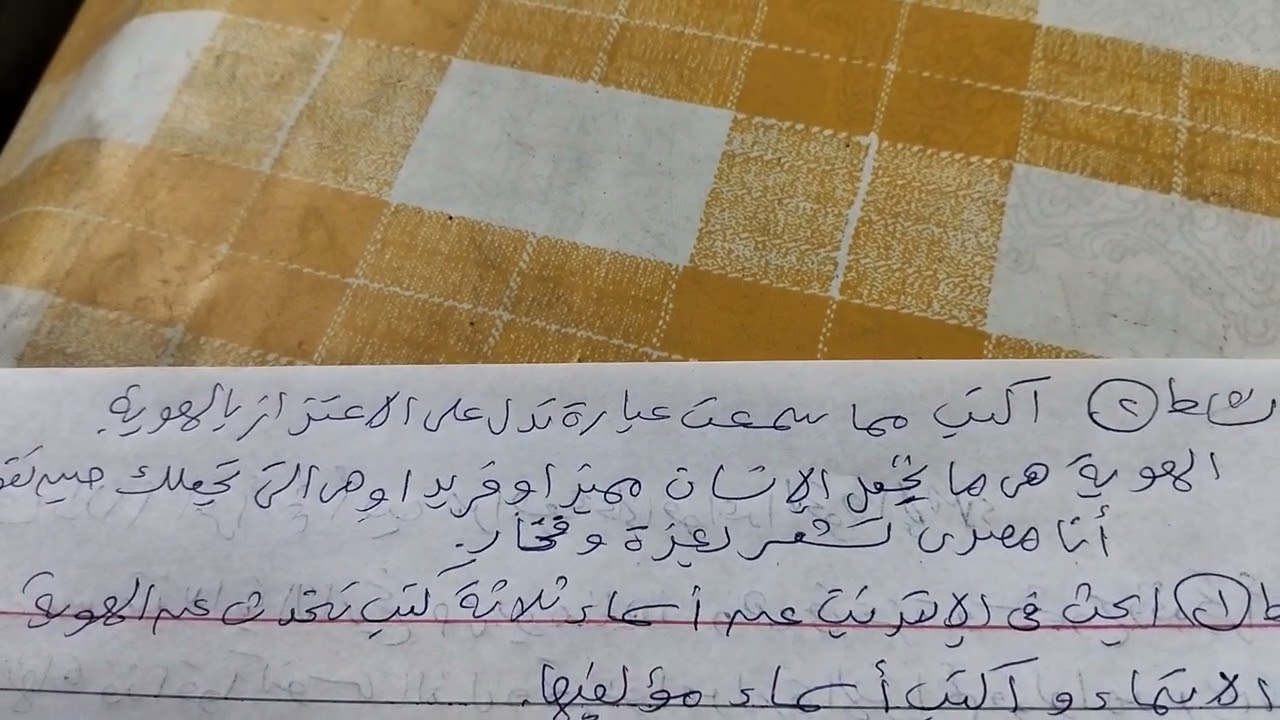 نشاط ٢ اكتب مما سمعت عبارة تدل على الاعتزاز بالهوية.
الهوية هى ما يجعل الإنسان مميزا وفريدا وهى التى تجعلك حين تقو
أنا مصرى تشعر بعزة وفخار.
ط ١ ابحث فى الإنترنيت عن أسماء ثلاثة كتب تتحدث عن الهوية
الانتماء و اكتب أسماء مؤلفيها.